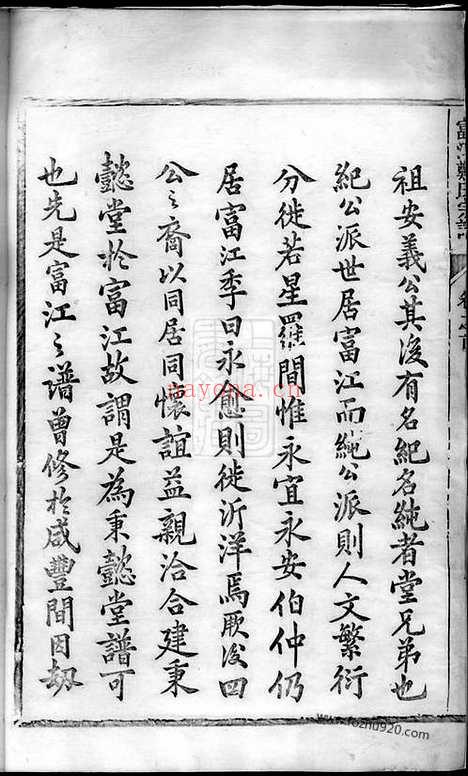 祖安義公其後有名紀名純者堂兄弟也
紀公派世居富江而純公派則人文繁衍
分徙若星羅間惟永宜永安伯仲仍
居富江季曰永愈則徙沂洋焉厥後四
公之裔以同居同懷誼益親洽合建秉
懿堂於富江故謂是為秉懿堂譜可
也先是富江之譜曾修於咸豐間因劫
nayona.cn
www.fozhu920.com